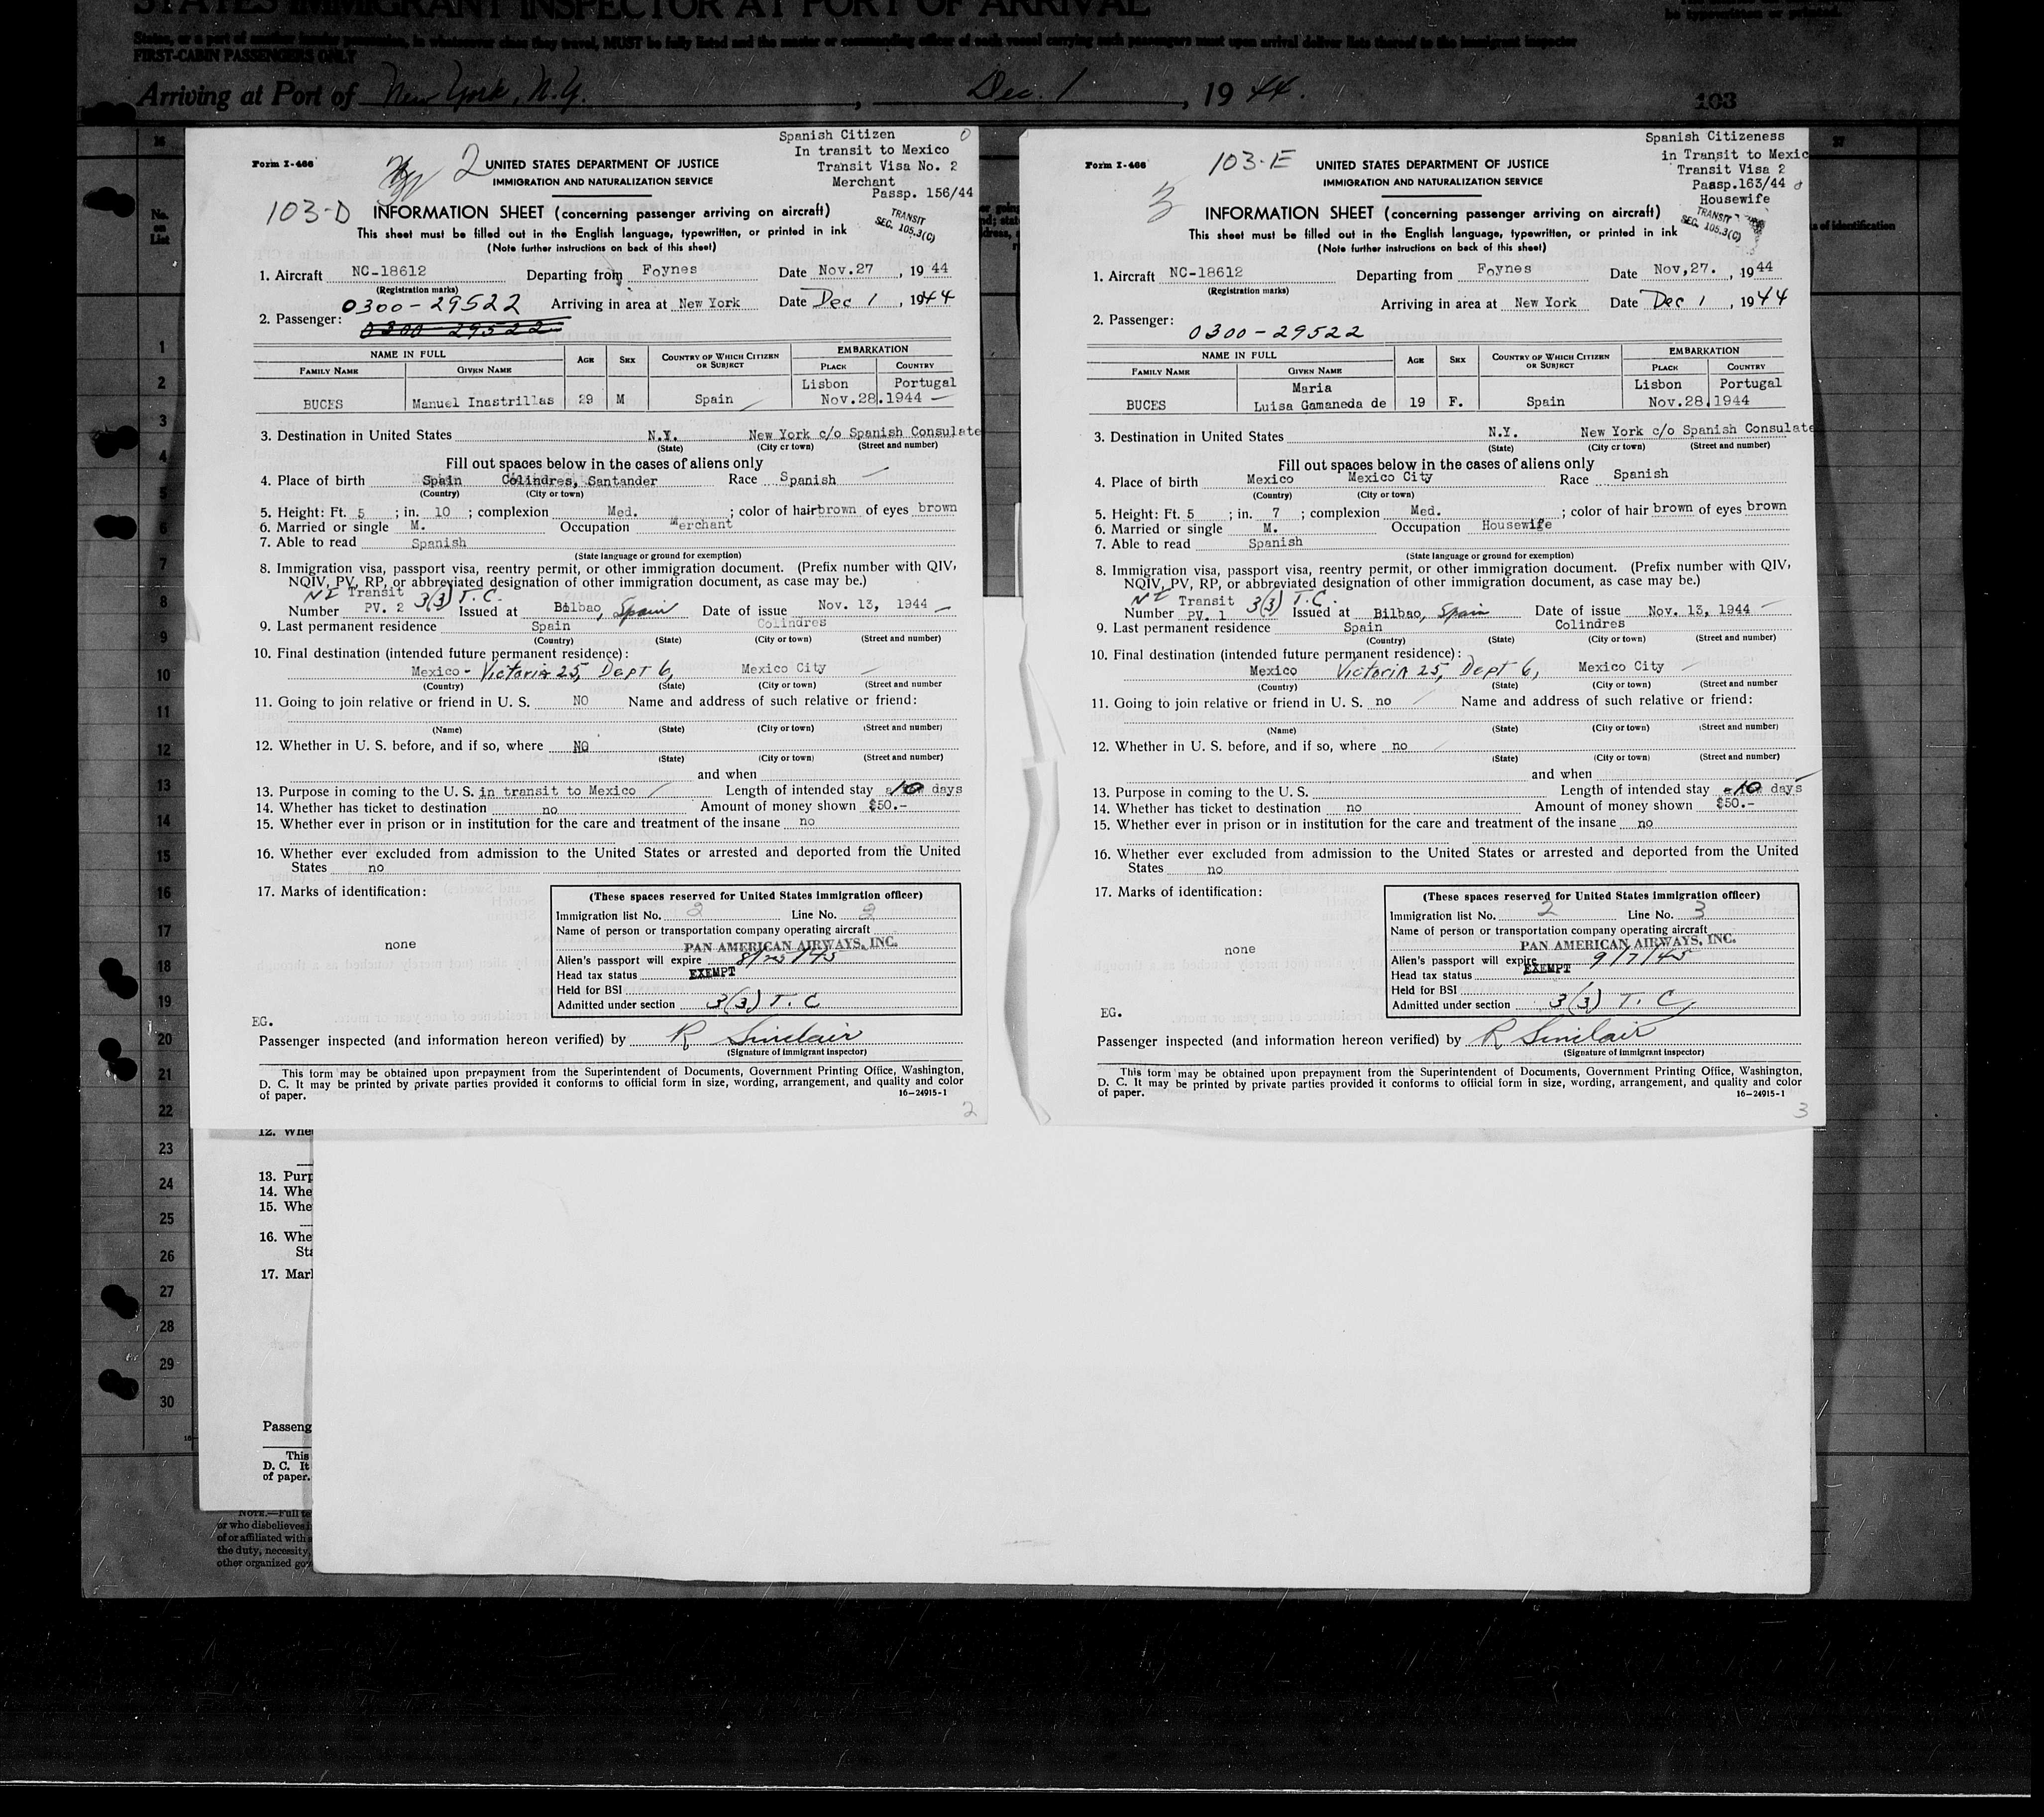 STATES IMMIGRANT INSPECTOR AT PORT OF ARRIVAL
FIRST-CABIN PASSENGERS ONLY
Arriving at Port of New York, N.Y. , Dec. 1 , 19 44.
103
Spanish Citizen
In transit to Mexico
Transit Visa No. 2
Merchant
Passp. 156/44
Form I-466
2
UNITED STATES DEPARTMENT OF JUSTICE
IMMIGRATION AND NATURALIZATION SERVICE
103-D
INFORMATION SHEET (concerning passenger arriving on aircraft)
TRANSIT
SEC. 105.3(C)
This sheet must be filled out in the English language, typewritten, or printed in ink
(Note further instructions on back of this sheet)
1. Aircraft NC-18612 Departing from Foynes Date Nov.27 , 19 44
(Registration marks)
0300-29522 Arriving in area at New York Date Dec 1 , 1944
2. Passenger: 0300-29522
NAME IN FULL AGE SEX COUNTRY OF WHICH CITIZEN OR SUBJECT EMBARKATION
FAMILY NAME GIVEN NAME PLACE COUNTRY
Lisbon Portugal
BUCES Manuel Inastrillas 29 M Spain Nov.28.1944
3. Destination in United States N.Y. New York c/o Spanish Consulate
(State) (City or town) (Street and number)
Fill out spaces below in the cases of aliens only
4. Place of birth Spain Colindres, Santander Race Spanish
(Country) (City or town)
5. Height: Ft. 5 ; in. 10 ; complexion Med. ; color of hair brown of eyes brown
6. Married or single M. Occupation Merchant
7. Able to read Spanish
(State language or ground for exemption)
8. Immigration visa, passport visa, reentry permit, or other immigration document. (Prefix number with QIV,
NQIV, PV, RP, or abbreviated designation of other immigration document, as case may be.)
Transit 3(3) T.C.
Number PV. 2 Issued at Bilbao, Spain Date of issue Nov. 13, 1944
9. Last permanent residence Spain Colindres
(Country) (State) (City or town) (Street and number)
10. Final destination (intended future permanent residence):
Mexico - Victoria 25, Dept 6, Mexico City
(Country) (State) (City or town) (Street and number
11. Going to join relative or friend in U. S. NO Name and address of such relative or friend:
(Name) (State) (City or town) (Street and number)
12. Whether in U. S. before, and if so, where NO
(State) (City or town) (Street and number)
and when
13. Purpose in coming to the U. S. in transit to Mexico Length of intended stay 10 days
14. Whether has ticket to destination no Amount of money shown $50.-
15. Whether ever in prison or in institution for the care and treatment of the insane no
16. Whether ever excluded from admission to the United States or arrested and deported from the United
States no
17. Marks of identification:
none
(These spaces reserved for United States immigration officer)
Immigration list No. 2 Line No. 2
Name of person or transportation company operating aircraft
PAN AMERICAN AIRWAYS, INC.
Alien's passport will expire 8/25/45
Head tax status EXEMPT
Held for BSI
Admitted under section 3(3) T. C
EG.
Passenger inspected (and information hereon verified) by R Sinclair
(Signature of immigrant inspector)
This form may be obtained upon prepayment from the Superintendent of Documents, Government Printing Office, Washington,
D. C. It may be printed by private parties provided it conforms to official form in size, wording, arrangement, and quality and color
of paper.
16—24915-1
2
Spanish Citizeness
in Transit to Mexic
Transit Visa 2
Paasp.163/44
Housewife
Form I-466
103-E
3
UNITED STATES DEPARTMENT OF JUSTICE
IMMIGRATION AND NATURALIZATION SERVICE
INFORMATION SHEET (concerning passenger arriving on aircraft)
TRANSIT
SEC. 105.3(C)
This sheet must be filled out in the English language, typewritten, or printed in ink
(Note further instructions on back of this sheet)
1. Aircraft NC-18612 Departing from Foynes Date Nov,27. , 19 44
(Registration marks)
Arriving in area at New York Date Dec 1 , 1944
2. Passenger: 0300-29522
NAME IN FULL AGE SEX COUNTRY OF WHICH CITIZEN OR SUBJECT EMBARKATION
FAMILY NAME GIVEN NAME PLACE COUNTRY
Maria Lisbon Portugal
BUCES Luisa Gamaneda de 19 F. Spain Nov.28.1944
3. Destination in United States N.Y. New York c/o Spanish Consulate
(State) (City or town) (Street and number)
Fill out spaces below in the cases of aliens only
4. Place of birth Mexico Mexico City Race Spanish
(Country) (City or town)
5. Height: Ft. 5 ; in. 7 ; complexion Med. ; color of hair brown of eyes brown
6. Married or single M. Occupation Housewife
7. Able to read Spanish
(State language or ground for exemption)
8. Immigration visa, passport visa, reentry permit, or other immigration document. (Prefix number with QIV,
NQIV, PV, RP, or abbreviated designation of other immigration document, as case may be.)
Transit 3(3) T.C.
Number PV. 1 Issued at Bilbao, Spain Date of issue Nov. 13, 1944
9. Last permanent residence Spain Colindres
(Country) (State) (City or town) (Street and number)
10. Final destination (intended future permanent residence):
Mexico Victoria 25, Dept 6, Mexico City
(Country) (State) (City or town) (Street and number
11. Going to join relative or friend in U. S. no Name and address of such relative or friend:
(Name) (State) (City or town) (Street and number)
12. Whether in U. S. before, and if so, where no
(State) (City or town) (Street and number)
and when
13. Purpose in coming to the U. S. Length of intended stay 10 days
14. Whether has ticket to destination no Amount of money shown $50.-
15. Whether ever in prison or in institution for the care and treatment of the insane no
16. Whether ever excluded from admission to the United States or arrested and deported from the United
States no
17. Marks of identification:
none
(These spaces reserved for United States immigration officer)
Immigration list No. 2 Line No. 3
Name of person or transportation company operating aircraft
PAN AMERICAN AIRWAYS, INC.
Alien's passport will expire 9/7/45
Head tax status EXEMPT
Held for BSI
Admitted under section 3(3) T. C,
EG.
Passenger inspected (and information hereon verified) by R Sinclair
(Signature of immigrant inspector)
This form may be obtained upon prepayment from the Superintendent of Documents, Government Printing Office, Washington,
D. C. It may be printed by private parties provided it conforms to official form in size, wording, arrangement, and quality and color
of paper.
16—24915-1
3
No.
on
List
1
2
3
4
5
6
7
8
9
10
11
12
13
14
15
16
17
18
19
20
21
22
23
24
25
26
27
28
29
30
37
of identification
12. Whe
13. Purp
14. Whe
15. Whe
16. Whe
Sta
17. Mar
Passeng
This
D. C. It
of paper.
NOTE.—Full te
or who disbelieves i
of or affiliated with
the duty, necessity,
other organized gov